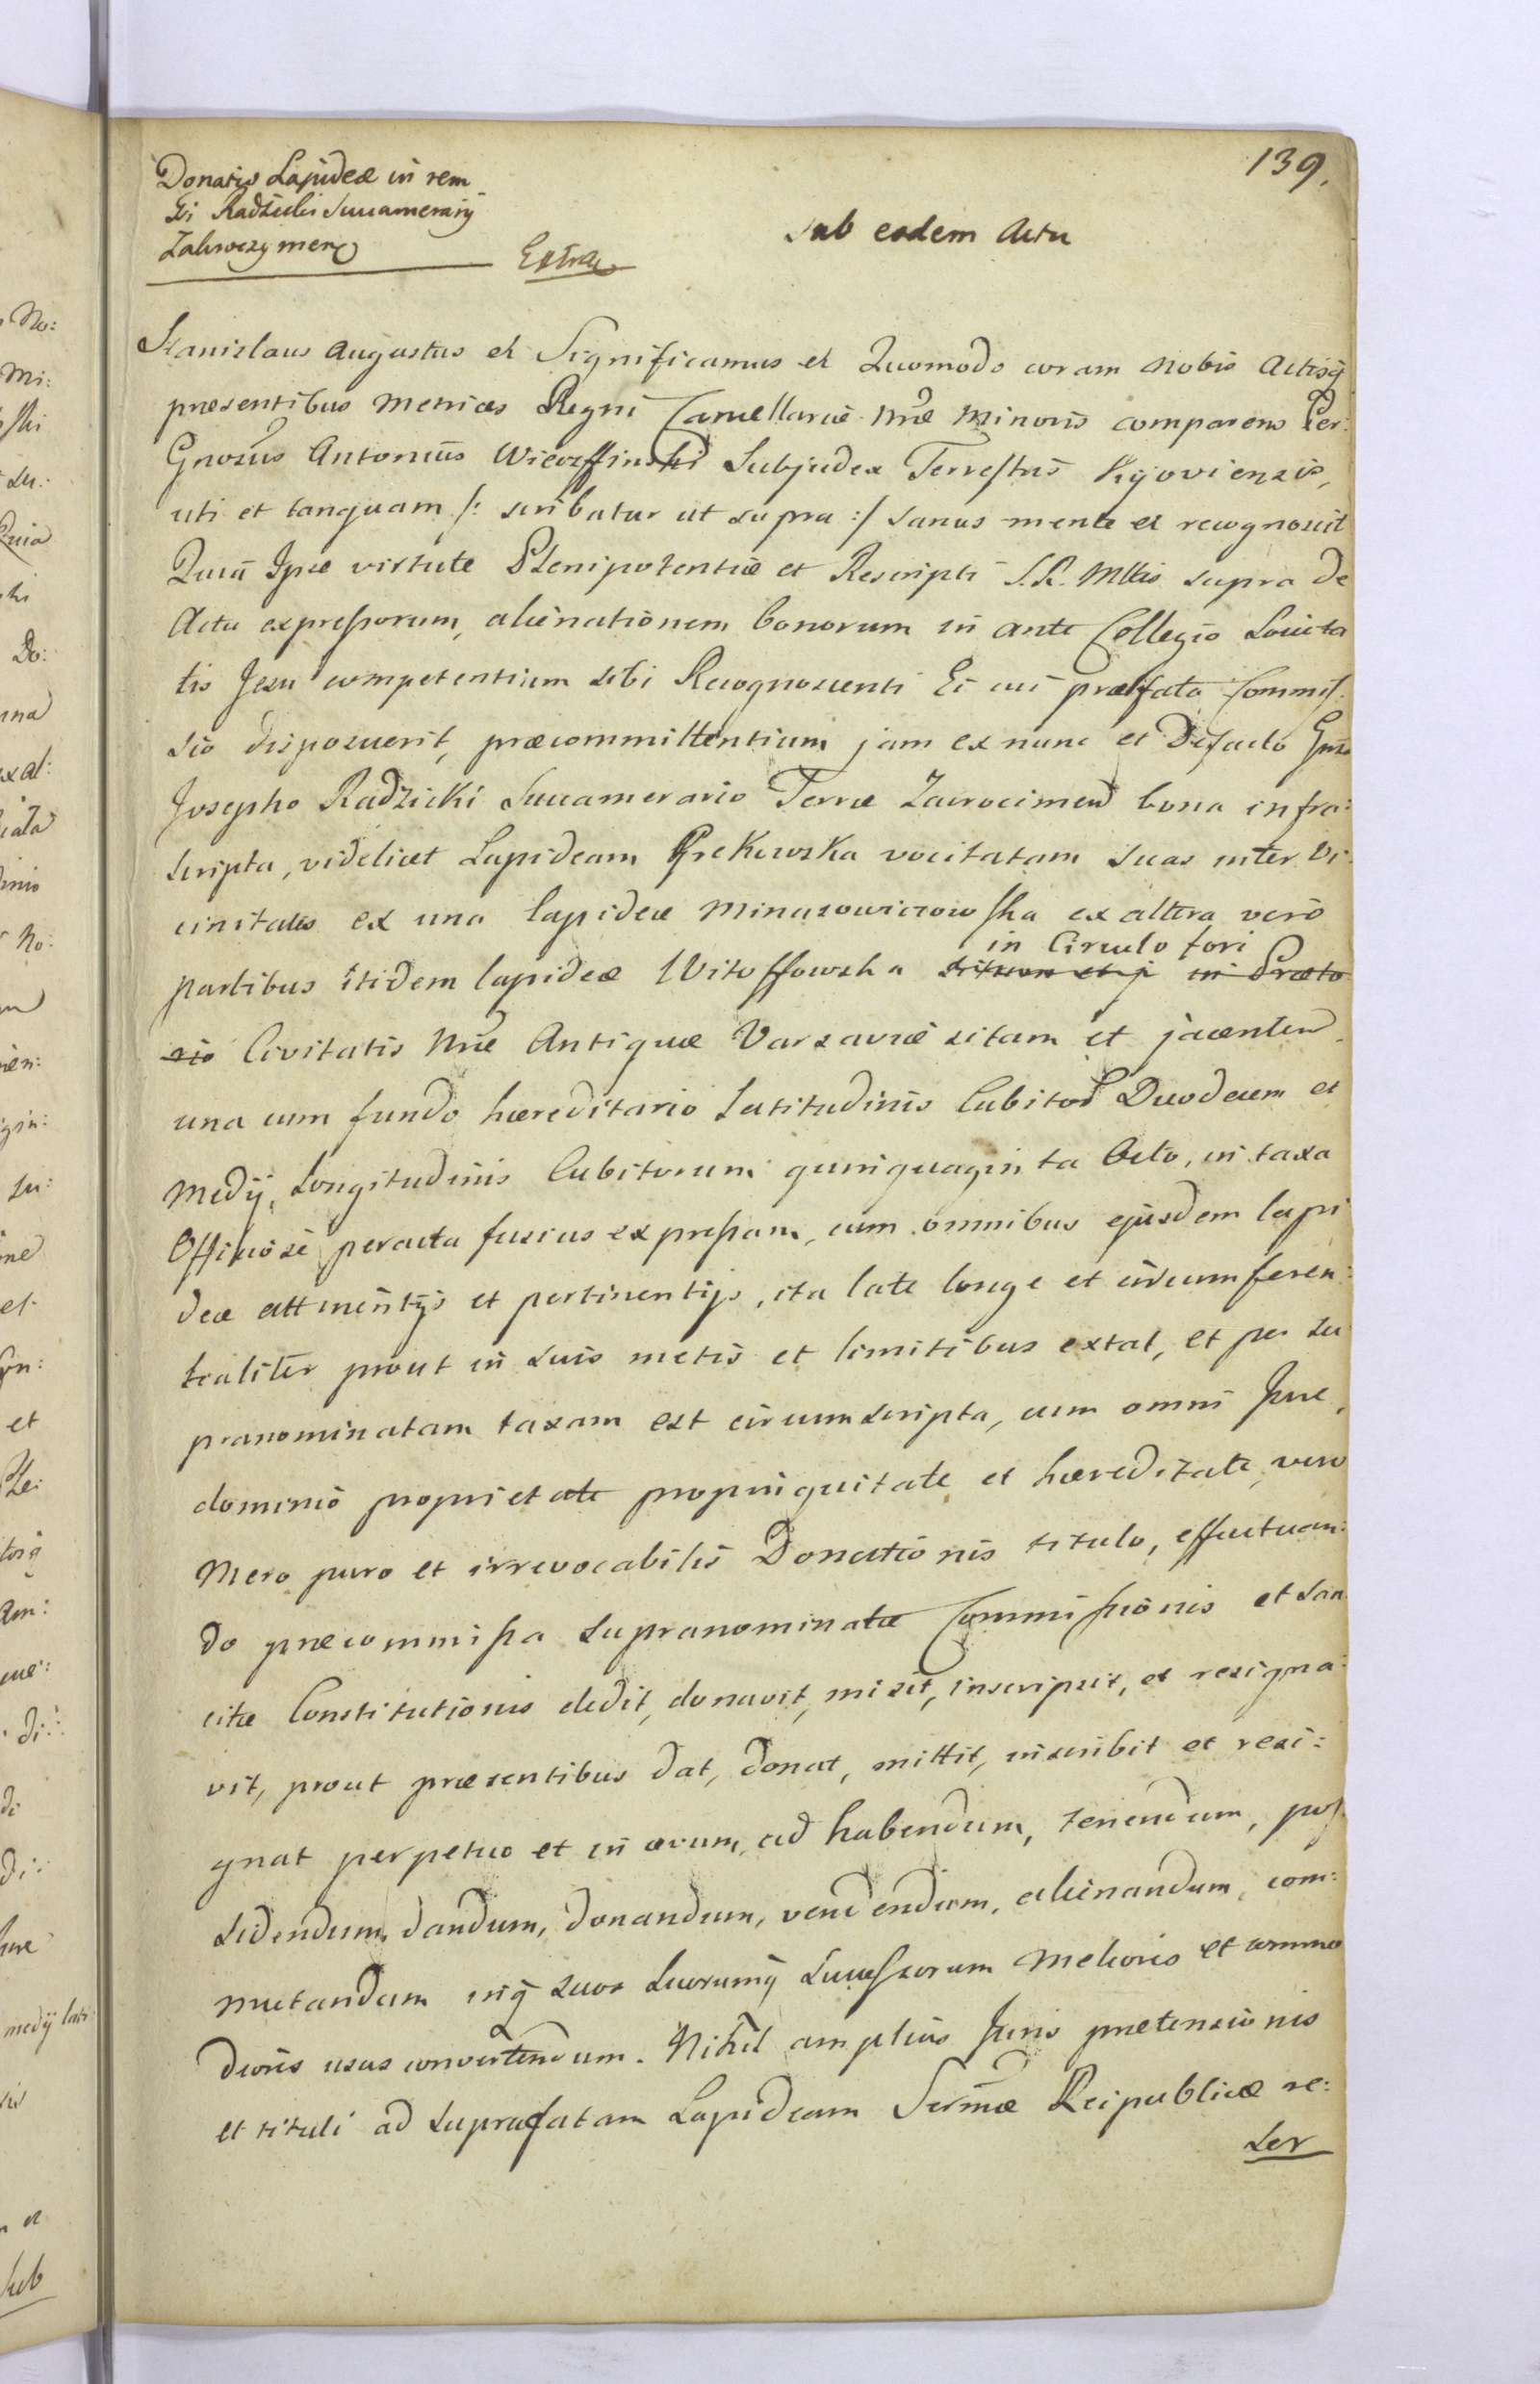 139.
Donatio Lapideæ in rem
Gsi Radzicki Succamerarij
Zakroczymen
Extra
sub eodem Actu
Stanislaus Augustus et Significamus et Quomodo coram Nobis Actisq
præsentibus Metrices Regni Cancellariæ Nræ Minoris comparens Per:
Gnosus Antonius Wieczffinski Subjudex Terrestris Kijoviensis,
uti et tanquam /: scribatur ut supra :/ sanus mente et recognovit
Quia Ipse virtute Plenipotentiæ et Rescripti S. R. Mttis supra de
Actu expressorum, alienationem bonorum in ante Collegio Societa
tis Jesu competentium sibi Recognoscenti Ei cui præfata Commis
sio disposuerit, præcommittentium jam ex nunc et Defacto Gnso
Josepho Radzicki Succamerario Terræ Zacrocimen bona infra:
scripta, videlicet Lapideam Grekowska vocitatam suas inter Vi
cinitates ex una lapideæ Minasowiczowska ex altera vero
in Circulo fori
partibus itidem lapideæ Witoffowska sitam et j in Præto
rio Civitatis Nræ Antiquæ Varsaviæ sitam et jacentem
una cum fundo hæreditario Latitudinis Cubitor Duodecim et
Medij, Longitudinis Cubitorum quinquaginta Octo, in taxa
Officiose peracta fusius expressam, cum omnibus ejusdem lapi
deæ attinentijs et pertinentijs, ita late longe et circumferen:
tialiter prout in suis metis et limitibus extat, et per su
pranominatam taxam est circumscripta, cum omni Jure,
dominio proprietate propinquitate et hæreditate, vero
Mero puro et irrevocabilis Donationis titulo, effectuan:
do præcommissa supranominatæ Commissionis et San
citæ Constitutionis dedit, donavit, misit, inscripsit, et resigna:
vit, prout præsentibus dat, donat, mittit, inscribit et resi:
gnat perpetuo et in ævum, ad habendum, tenendum, pos
sidendum, dandum, donandum, vendendum, alienandum, com:
mutandum inq suos suorumq Successorum Melioris et commo
dioris usus convertendum. Nihil amplius Juris prætensionis
et tituli ad suprafatam Lapideam Sermæ Reipublicæ re:
ser